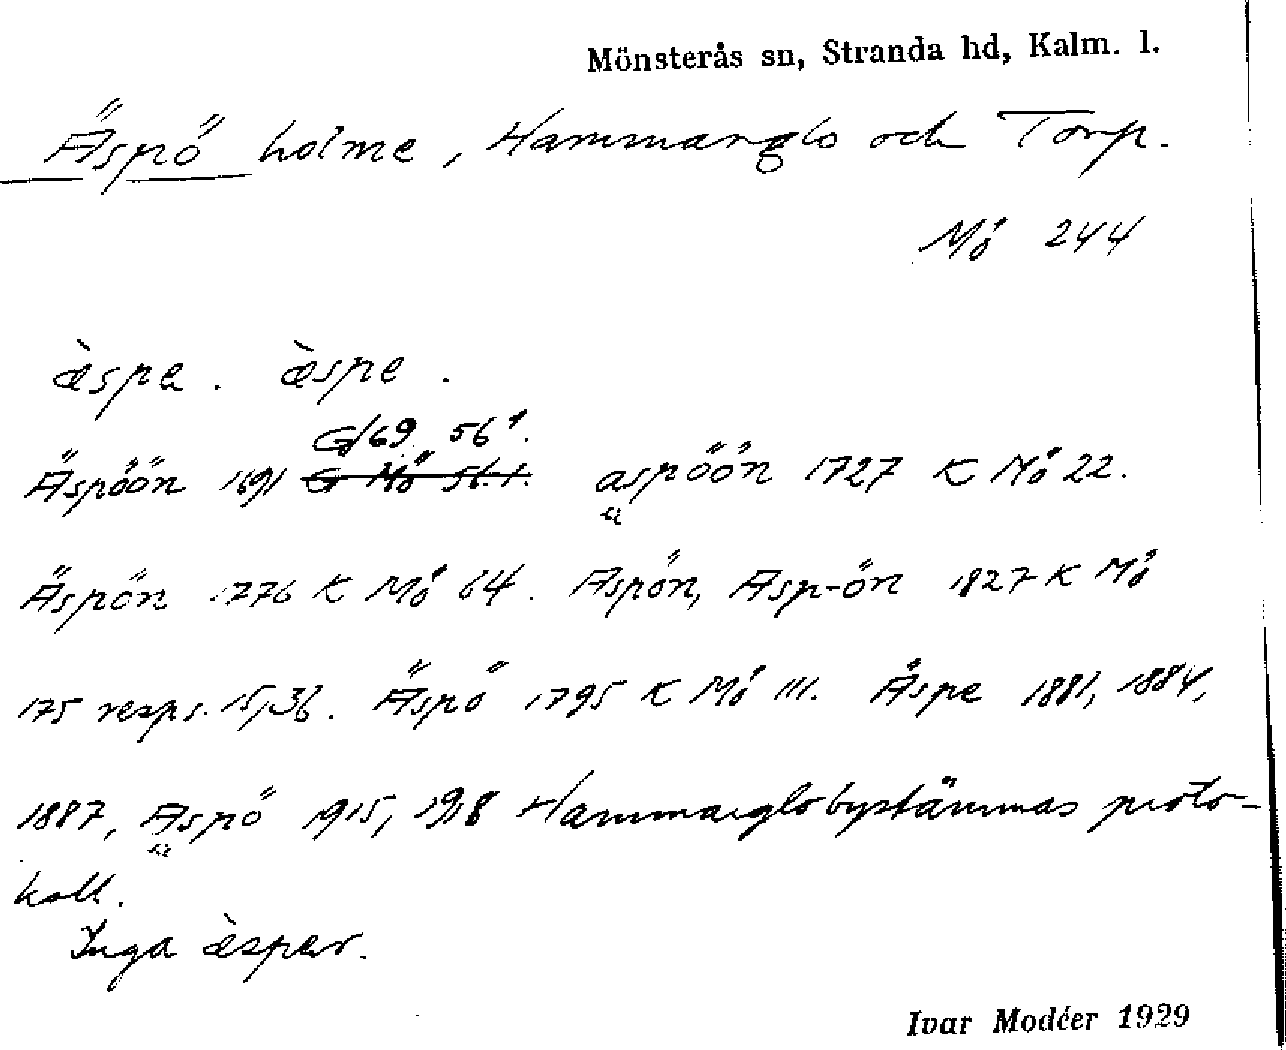 Mönsterås sn, Stranda hd, Kalm. l.
Äspö holme, Hammarglo och Torp.
Mö 244
æ̀spa. æ̀spe.
G/69 56¹.
Äspöön 1691 G Mö 56.1. aspöön 1727 K Mö 22.
a
Äspön 1776 K Mö 64. Aspön, Asp-ön 1827 K Mö
175 resps. 15,36. Äspö 1795 K Mö 111. Åspe 1881, 1884,
1887, Aspö 1915, 1918 Hammarglobystämmas proto-
a
koll.
Inga æ̀spar.
Ivar Modéer 1929